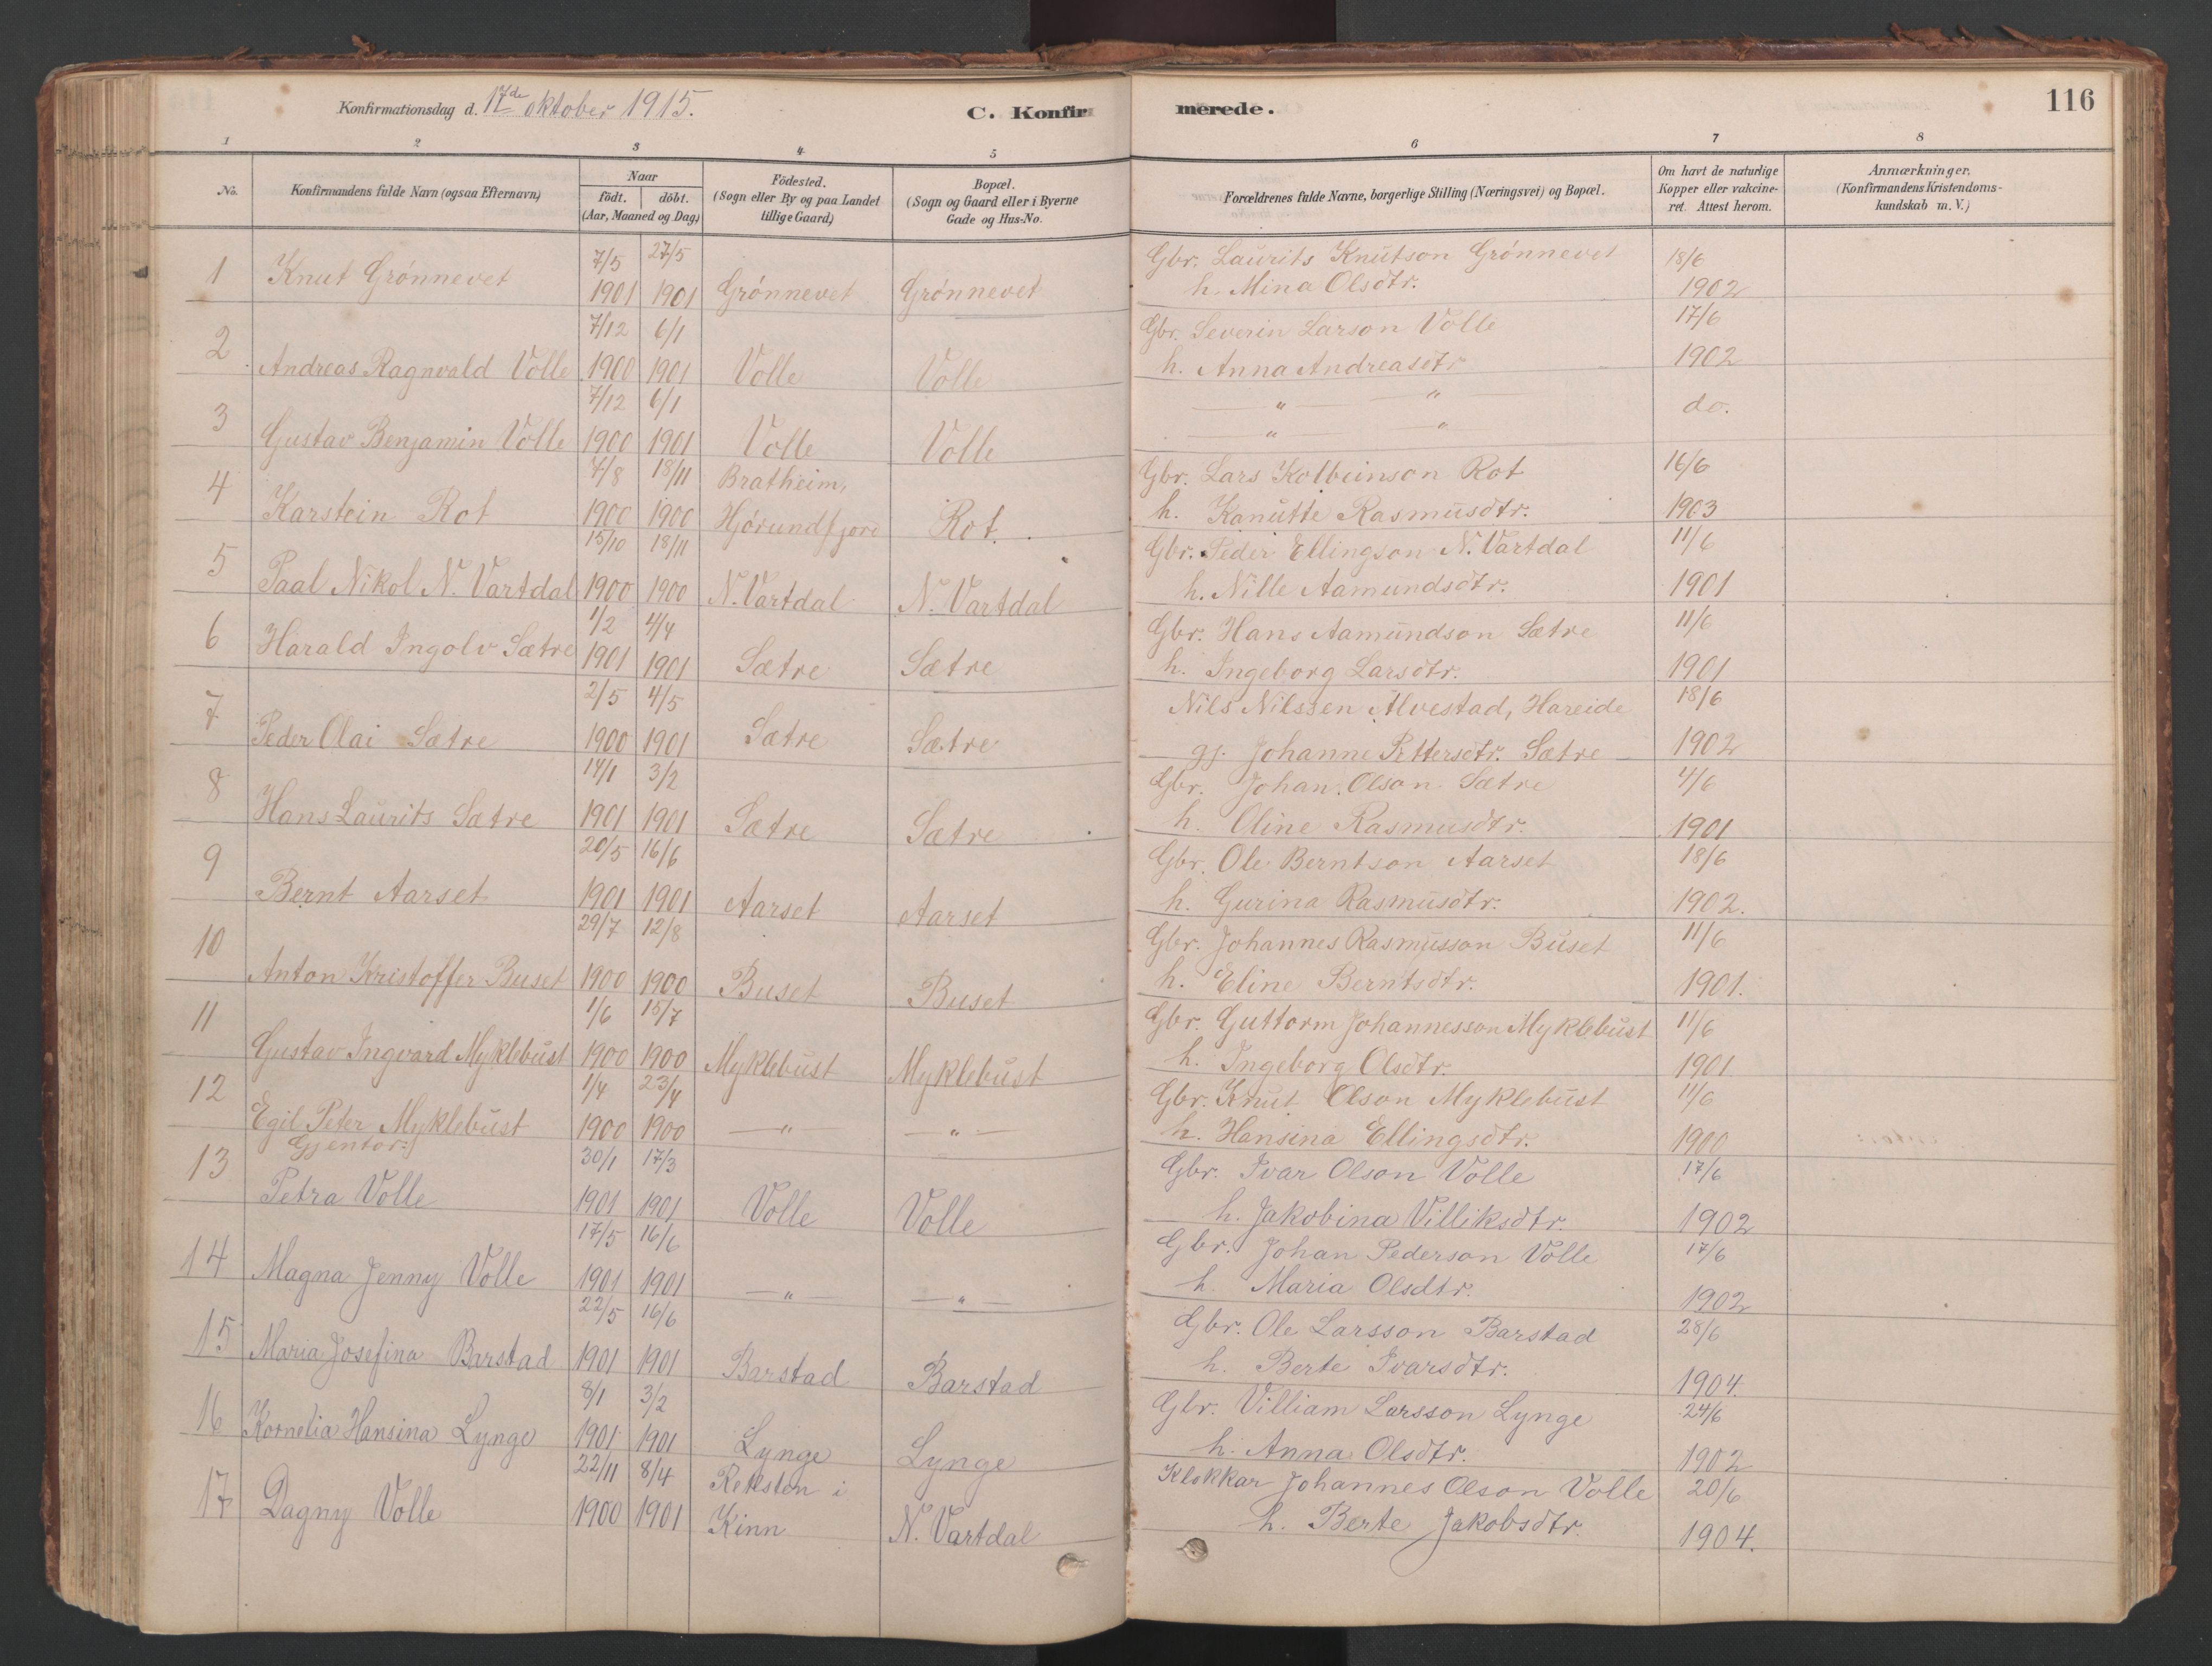 Konfirmationsdag d. 17de oktober 1915. C. Konfirmerede. 116
1 2 3 4 5 6 7 8
No. Konfirmandens fulde Navn (ogsaa Efternavn) Naar födt. döbt. (Aar, Maaned og Dag) Födested. (Sogn eller By og paa Landet tillige Gaard) Bopæl. (Sogn og Gaard eller i Byerne Gade og Hus-No. Forældrenes fulde Navne, borgerlige Stilling (Næringsvei) og Bopæl. Om havt de naturlige Kopper eller vakcineret. Attest herom. Anmærkninger. (Konfirmandens Kristendomskundskab m. V.)
7/5 27/5 Gbr. Laurits Knutson Grönnevet 18/6
1 Knut Grönnevet 1901 1901 Grönnevet Grönnevet h. Mina Olsdtr. 1902
7/12 6/1 Gbr. Severin Larson Volle 17/6
2 Andreas Ragnvald Volle 1900 1901 Volle Volle h. Anna Andreasdtr 1902
7/12 6/1 — " — — " — do.
3 Gustav Benjamin Volle 1900 1901 Volle Volle — " — "
7/8 18/11 Bratheim, Gbr. Lars Kolbeinson Rot 16/6
4 Karstein Rot 1900 1900 Hjörundfjord Rot. h. Kanutte Rasmusdtr. 1903
15/10 18/11 Gbr. Peder Ellingson N. Vartdal 11/6
5 Paal Nikol N. Vartdal 1900 1900 N. Vartdal N. Vartdal h. Nille Aamundsdtr. 1901
1/2 4/4 Gbr. Hans Aamundson Sætre 11/6
6 Harald Ingolv Sætre 1901 1901 Sætre Sætre h. Ingeborg Larsdtr. 1901
2/5 4/5 Nils Nilssen Alvestad, Hareide 18/6
7 Peder Olai Sætre 1900 1901 Sætre Sætre gj. Johanne Pettersdtr. Sætre 1902
14/1 3/2 Gbr. Johan Olson Sætre 4/6
8 Hans Laurits Sætre 1901 1901 Sætre Sætre h. Oline Rasmusdtr. 1901
20/5 16/6 Gbr. Ole Berntson Aarset 18/6
9 Bernt Aarset 1901 1901 Aarset Aarset h. Gurina Rasmusdtr. 1902.
29/7 12/8 Gbr. Johannes Rasmusson Buset 11/6
10 Anton Kristoffer Buset 1900 1900 Buset Buset h. Eline Berntsdtr. 1901.
1/6 15/7 Gbr. Guttorm Johannesson Myklebust 11/6
11 Gustav Ingvard Myklebust 1900 1900 Myklebust Myklebust h. Ingeborg Olsdtr. 1901
1/4 23/4 Gbr. Knut Olson Myklebust 11/6
12 Egil Peter Myklebust 1900 1900 — " — — " — h. Hansina Ellingsdtr. 1900
Gjentor: 30/1 17/3 Gbr. Ivar Olson Volle 17/6
13 Petra Volle 1901 1901 Volle Volle h. Jakobina Villiksdtr. 1902
17/5 16/6 Gbr. Johan Pederson Volle 17/6
14 Magna Jenny Volle 1901 1901 — " — — " — h. Maria Olsdtr. 1902
22/5 16/6 Gbr. Ole Larsson Barstad 28/6
15 Maria Josefina Barstad 1901 1901 Barstad Barstad h. Berte Ivarsdtr. 1904.
8/1 3/2 Gbr. Villiam Larsson Lynge 24/6
16 Kornelia Hansina Lynge 1901 1901 Lynge Lynge h. Anna Olsdtr. 1902
22/11 8/4 Reksten i Klokkar Johannes Olson Volle 20/6
17 Dagny Volle 1900 1901 Kinn N. Vartdal h. Berte Jakobsdtr. 1904.